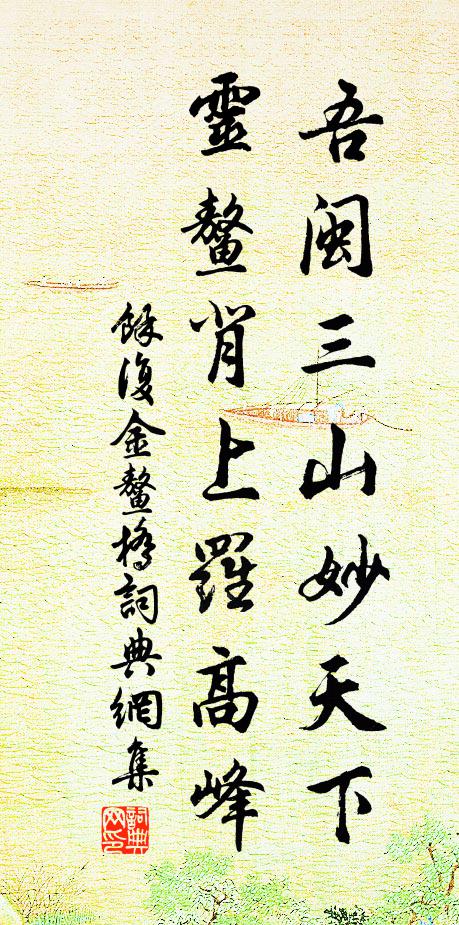 吾閩三山妙天下
靈鰲背上羅高峰
餘復金鰲橋詞典網集
詞典网印